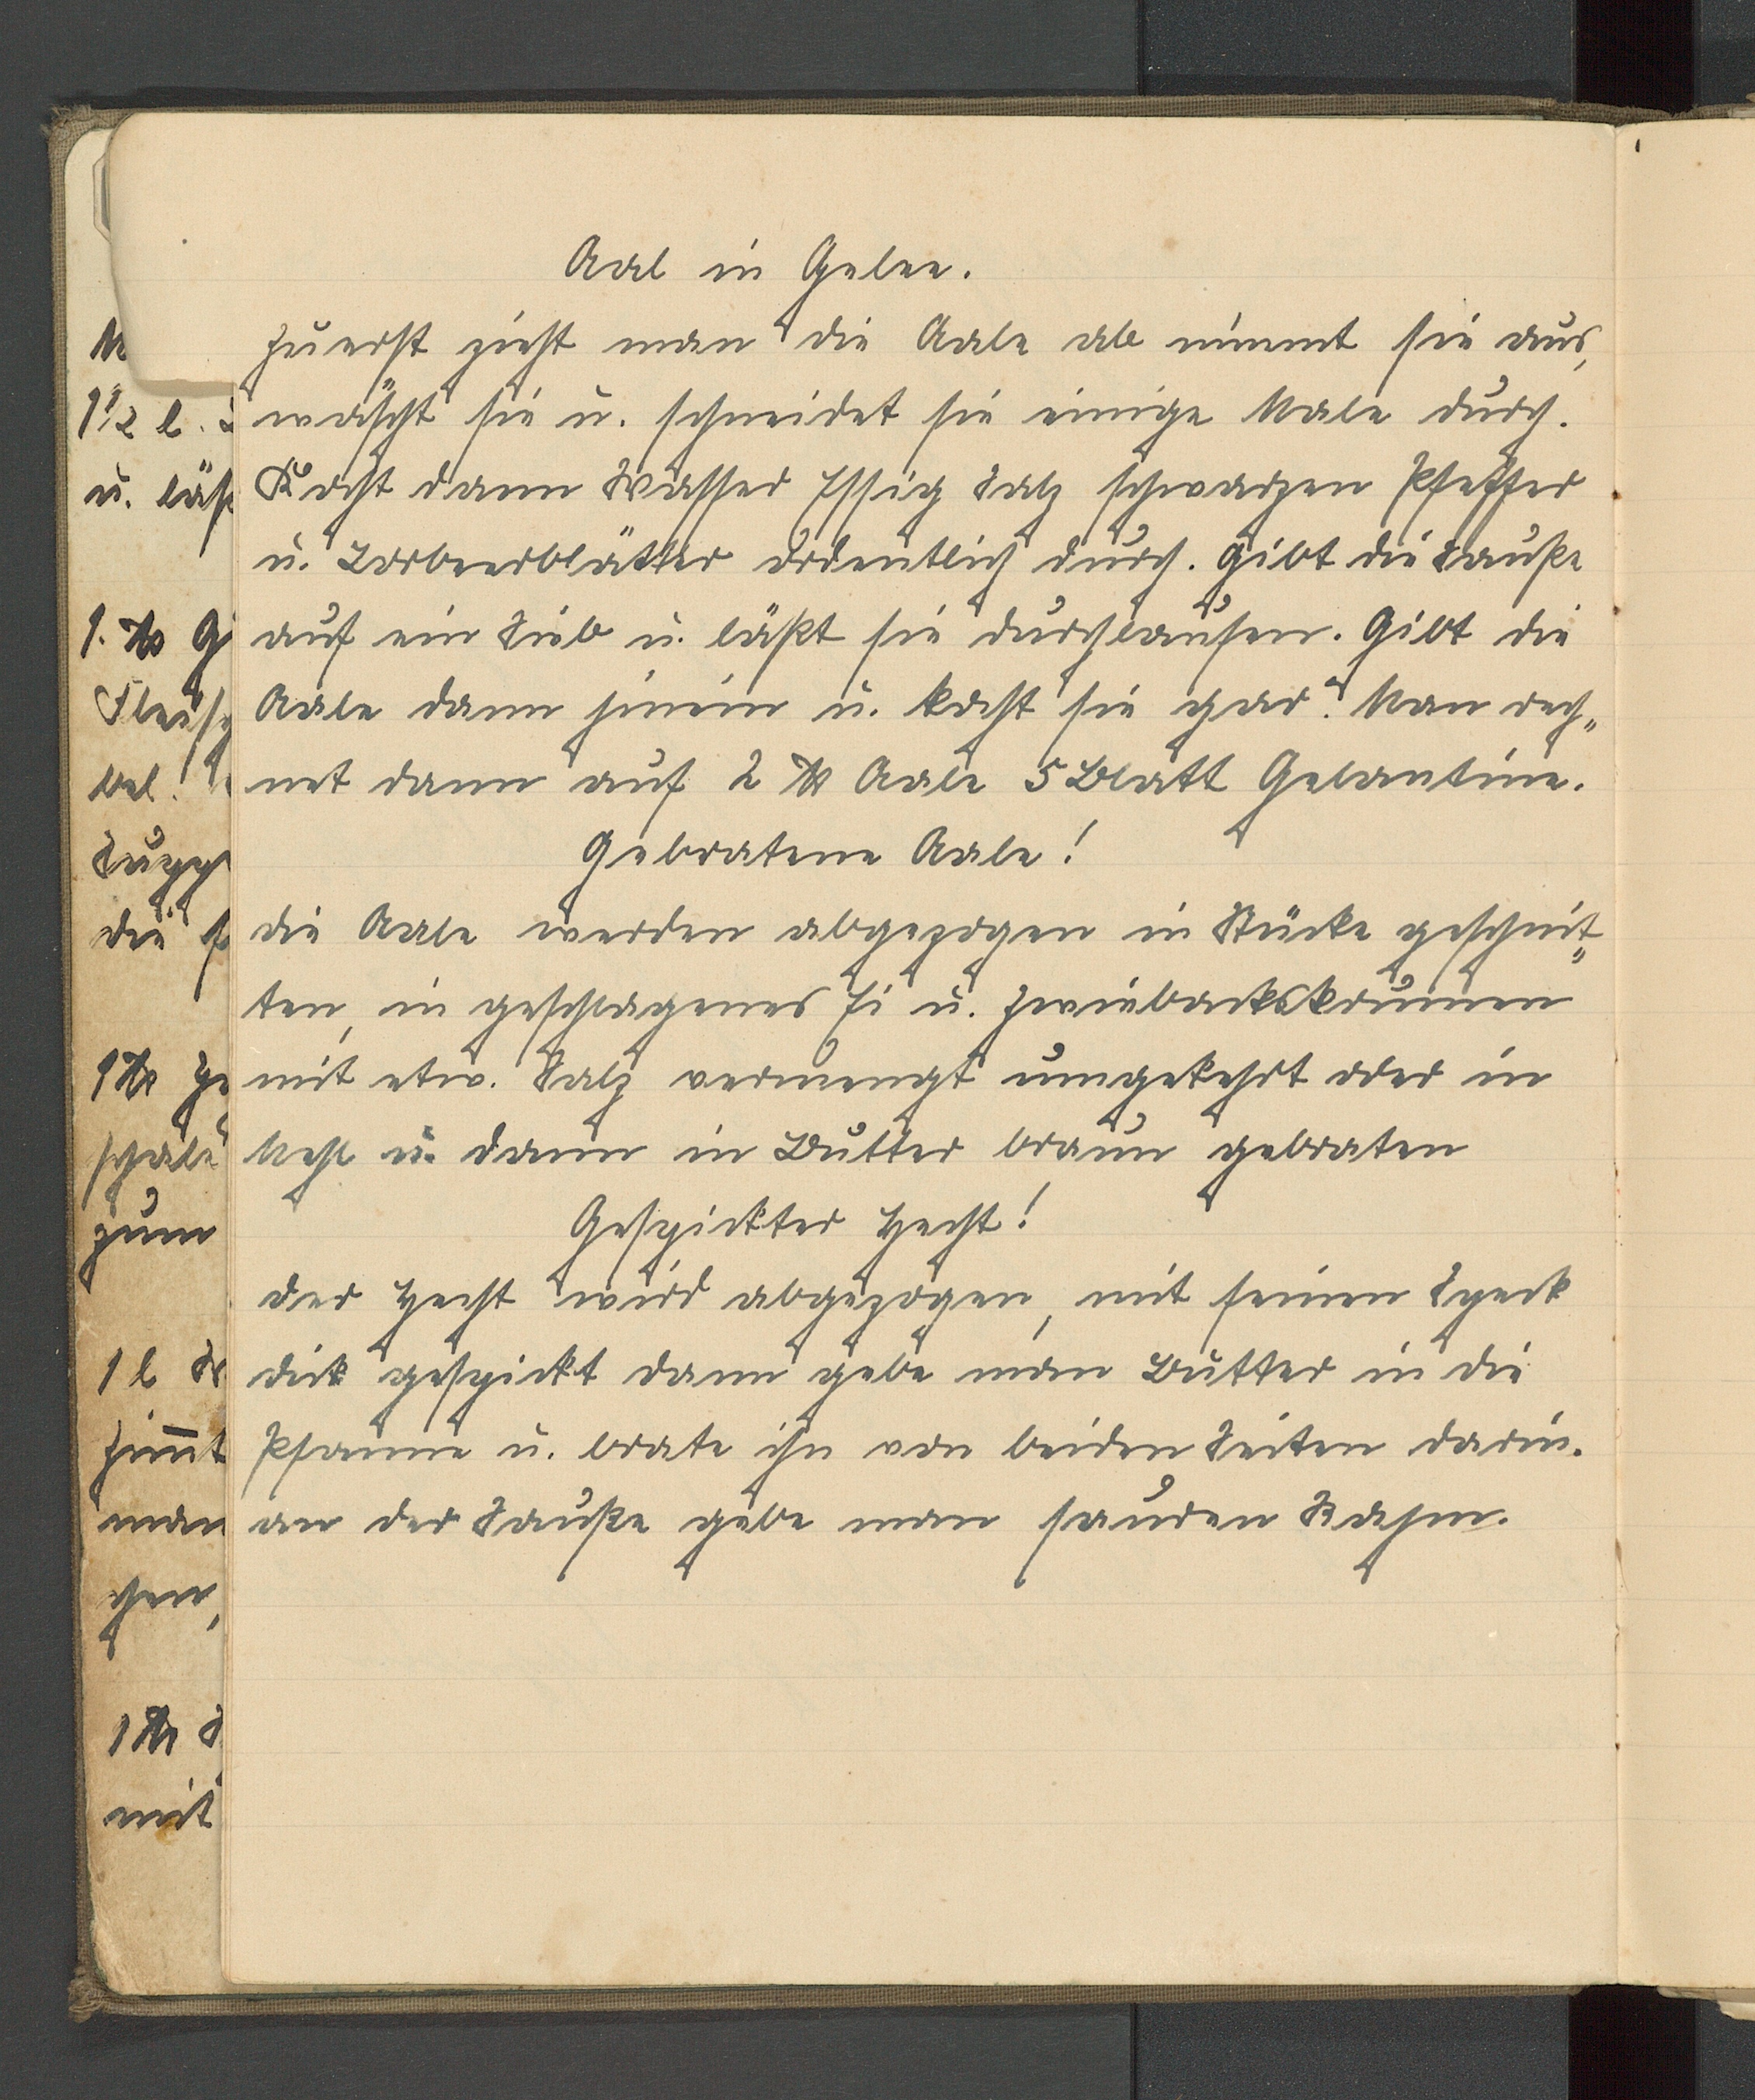 Aal in Gelee.
Zuerst zieht man die Aale ab nimmt sie aus,
wäscht sie u. schneidet sie einige Male durch.
Kocht dann Wasser Essig Salz schwarzen Pfeffer
u. Lorbeerblätter ordentlich durch. Gibt die Sauße
auf ein Sieb u. läßt sie durchlaufen. Gibt die
Aale dann hinein u. kocht sie gar. Man rech„
net dann auf 2 ℔ Aale 5 Blatt Gelantine.
Gebratene Aale!
die Aale werden abgezogen in Stücke geschnit„
ten, in geschlagenes Ei u. Zwiebackskrumen
mit etw. Salz vermengt umgekehrt oder in
Mehl u. dann in Butter braun gebraten
Gespickter Hecht!
der Hecht wird abgezogen, mit feinen Speck
dick gespickt dann gebe man Butter in die
Pfanne u. brate ihn von beiden Seiten darin.
an der Sauße gebe man sauren Rahm.
1 1/2 l.
u. läß
1. ℔
Fleisch
Supp
die
1 ℔
schäle
zum
1 l
Zimt
man
gen,
1 ℔
mit